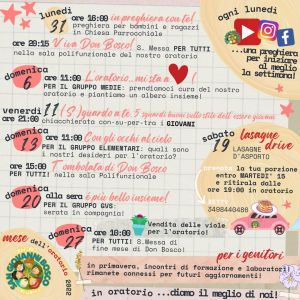 lunedì
31
ore 16:09 in preghiera con te!
preghiera per bambini e ragazzi
in Chiesa Parrocchiale
ogni lunedì
ore 20:15 Viva Don Bosco! S. Messa PER TUTTI
nella sala polifunzionale del nostro oratorio
...una preghiera
per iniziare
al meglio
la settimana!
domenica
6
ore 11:00 L'oratorio..mi sta a
PER IL GRUPPO MEDIE: prendiamoci cura del nostro
oratorio e piantiamo un albero insieme!
venerdì
11
(S)guardo a te, 5 sguardi nuovi sullo stile dell'essere giovani
ore 21:00
chiacchierata con-su-per-tra i GIOVANI
domenica
13
ore 11:00 Con gli occhi al cielo
PER IL GRUPPO ELEMENTARI: quali sono
i nostri desideri per l'oratorio?
ore 15:00 Tombolata di Don Bosco
PER TUTTI nella sala Polifunzionale
sabato
19
lasagne
drive
LASAGNE
D'ASPORTO
prenota la tua porzione
entro MARTEDI' 15
e ritirala dalle
ore 19:00 in oratorio
3498440480
domenica
20
alla sera è più bello insieme!
PER IL GRUPPO GVS:
serata in compagnia!
Vendita delle viole
per l'oratorio!
domenica
27
ore 10:00
PER TUTTI: S.Messa di
fine mese di Don Bosco!
mese dell'oratorio
2022
per i genitori
in primavera, incontri di formazione e laboratori
rimanete connessi per futuri aggiornamenti!
in oratorio ..diamo il meglio di noi!